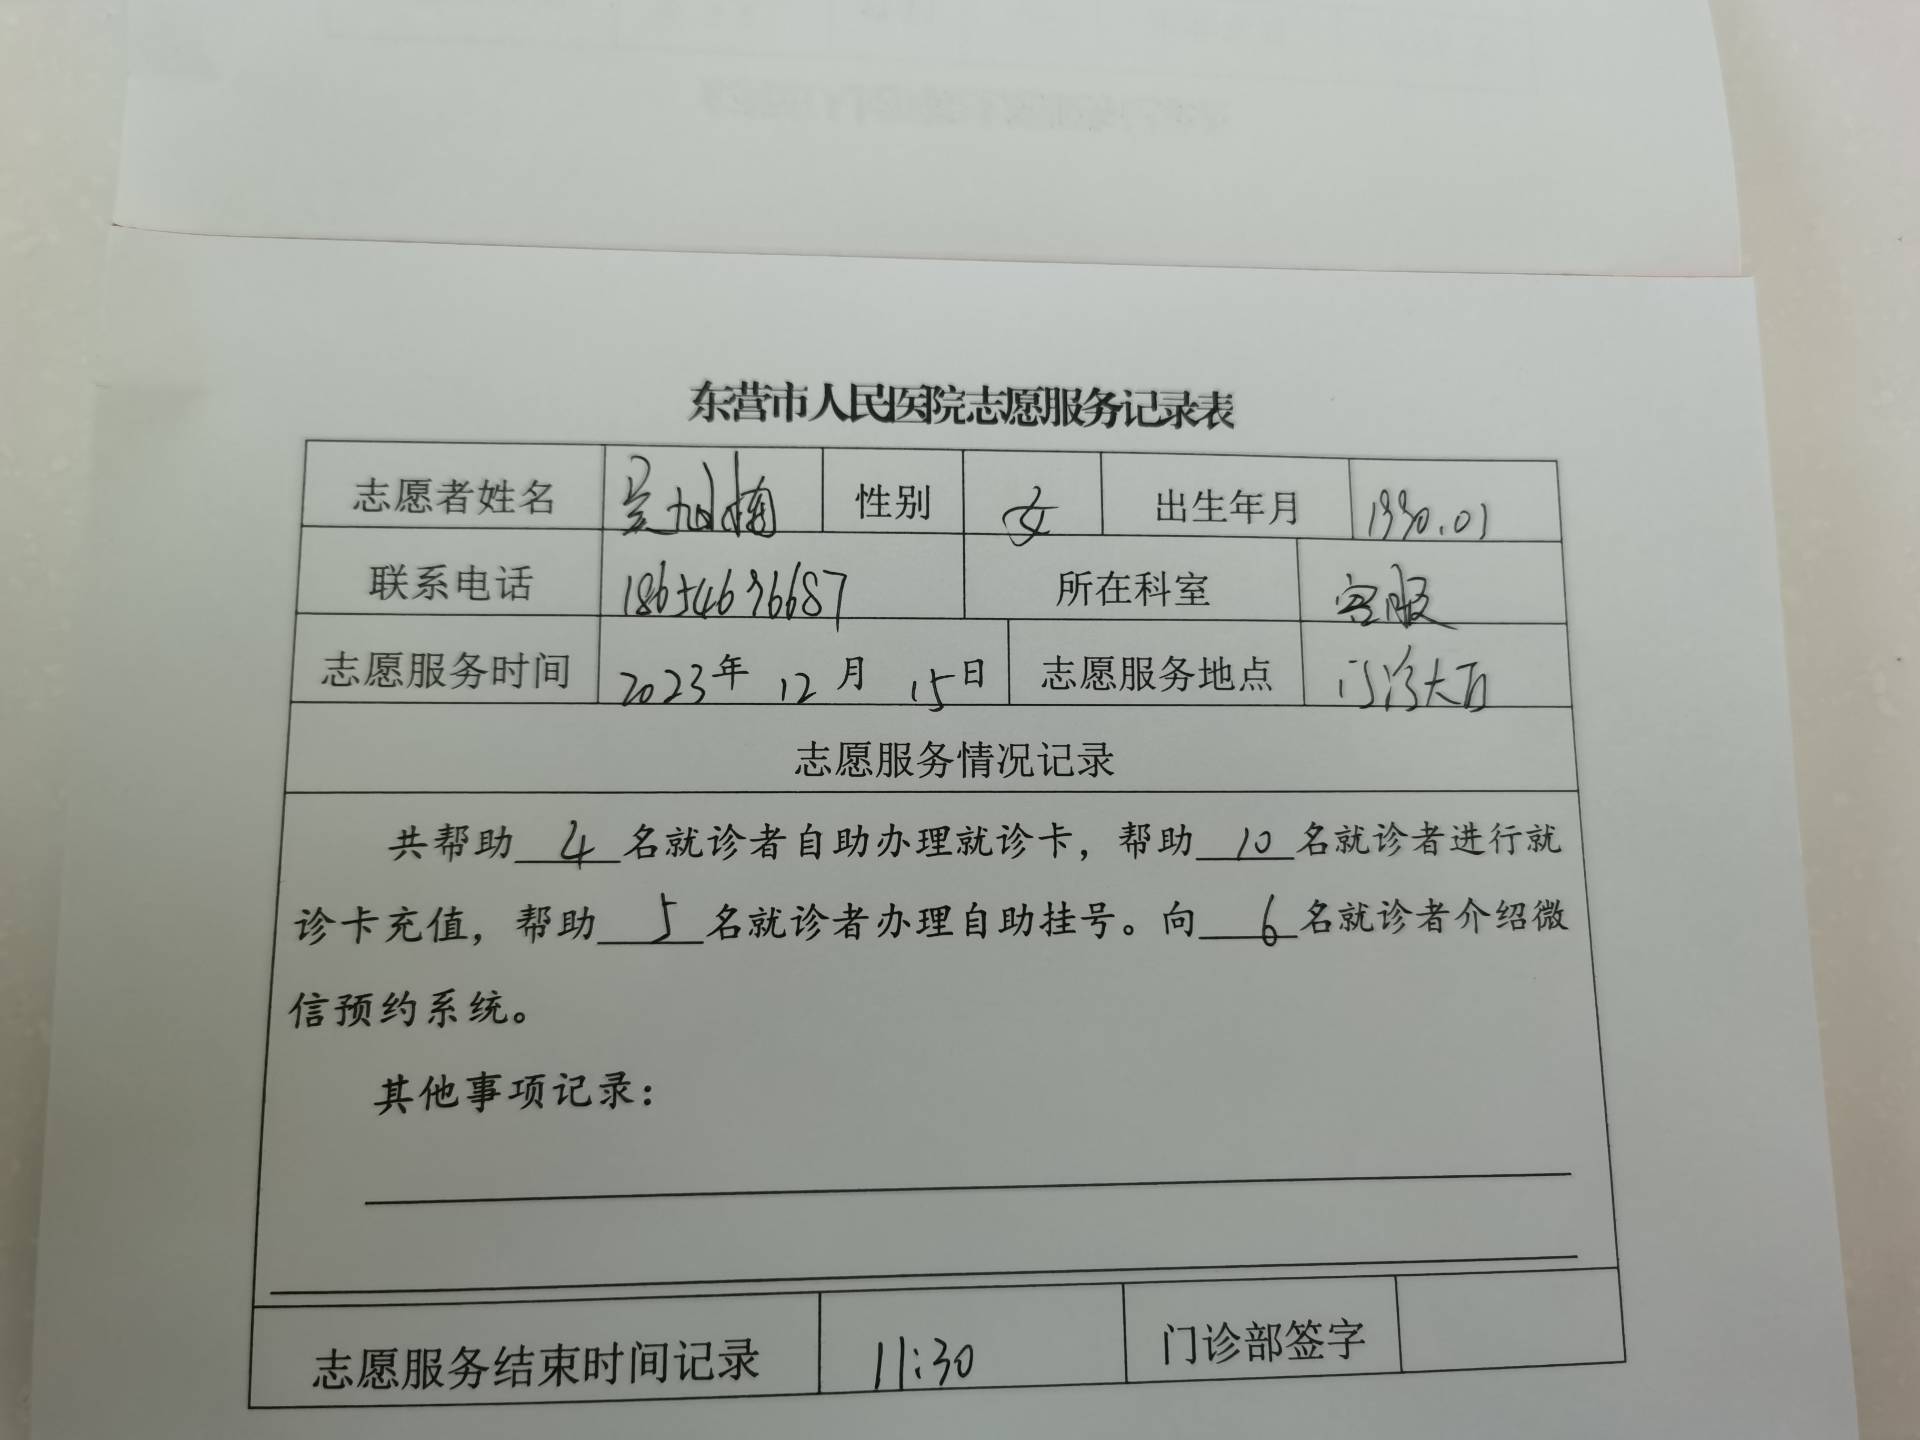 东营市人民医院志愿服务记录表
志愿者姓名 吴旭楠 性别 女 出生年月 1990.01
联系电话 18654696687 所在科室 客服
志愿服务时间 2023年 12月 15日 志愿服务地点 门诊大厅
志愿服务情况记录
共帮助 4 名就诊者自助办理就诊卡，帮助 10 名就诊者进行就
诊卡充值，帮助 5 名就诊者办理自助挂号。向 6 名就诊者介绍微
信预约系统。
其他事项记录：
志愿服务结束时间记录 11:30 门诊部签字